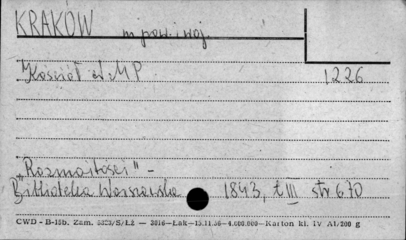 KRAKÓW m. pow. i woj.
Kościół N.M.P. 1226
„Rozmaitości” –
Biblioteka Warszawska 1843, t. III str 670
CWD - B-15b. Zam. 5323/S/Łż — 3016—Łak—15.11.50—4.000.000—Karton kl. IV A1/200 g